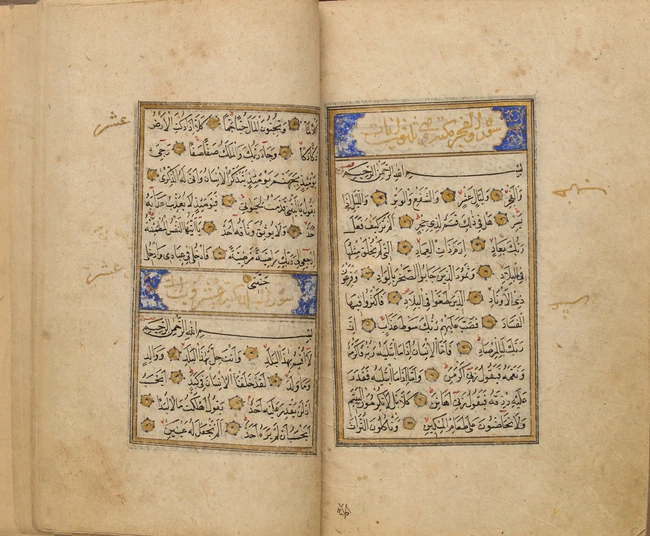 سورة الفجر مكية
بسم الله الرحمن الرحيم
والفجر وليال عشر والشفع والوتر واليل اذا
يسر هل في ذلك قسم لذي حجر الم تر كيف فعل
ربك بعاد ارم ذات العماد التي لم يخلق مثلها
في البلاد وثمود الذين جابوا الصخر بالواد وفرعون
ذي الاوتاد الذين طغوا في البلاد فاكثروا فيها
الفساد فصب عليهم ربك سوط عذاب ان
ربك لبالمرصاد فاما الانسان اذا ما ابتليه ربه فاكرمه
ونعمه فيقول ربي اكرمن واما اذا ما ابتليه فقدر
عليه رزقه فيقول ربي اهانن كلا بل لا تكرمون اليتيم
ولا تحاضون على طعام المسكين وتاكلون التراث
اكلا لما وتحبون المال حبا جما كلا اذا دكت الارض
دكا دكا وجاء ربك والملك صفا صفا وجيء
يومئذ بجهنم يومئذ يتذكر الانسان وانى له الذكرى
يقول يا ليتني قدمت لحياتي فيومئذ لا يعذب عذابه
احد ولا يوثق وثاقه احد يا ايتها النفس المطمئنة
ارجعي الى ربك راضية مرضية فادخلي في عبادي وادخلي
جنتي
سورة البلد مكية عشرون
بسم الله الرحمن الرحيم
لا اقسم بهذا البلد وانت حل بهذا البلد ووالد
وما ولد لقد خلقنا الانسان في كبد ايحسب
ان لن يقدر عليه احد يقول اهلكت مالا لبدا
ايحسب ان لم يره احد الم نجعل له عينين
عشر
عشر